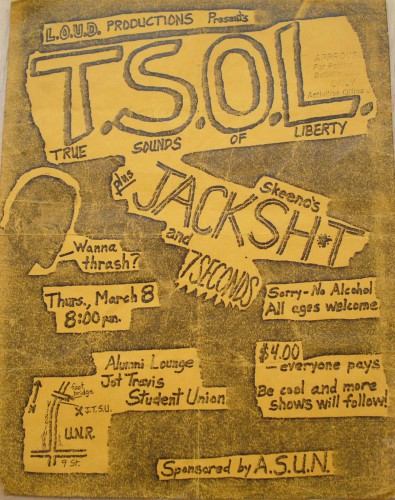 L.O.U.D. PRODUCTIONS Presents
T.S.O.L.
TRUE SOUNDS OF LIBERTY
APPROVED
For Posting
Activities Office
plus
Skeeno's
JACKSH*T
and
7 SECONDS
Wanna
thrash?
Thurs., March 8
8:00 pm.
Sorry - No Alcohol
All ages welcome
Alumni Lounge
Jot Travis
Student Union
$4.00
- everyone pays
Be cool and more
shows will follow!
N
foot
bridge
X J.T.S.U.
U.N.R.
9 St.
Sponsored by A.S.U.N.